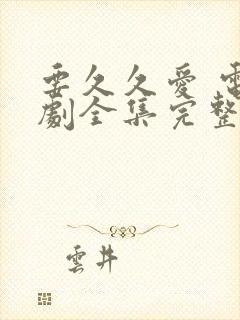 要久久愛 電
劇全集完整
雲井